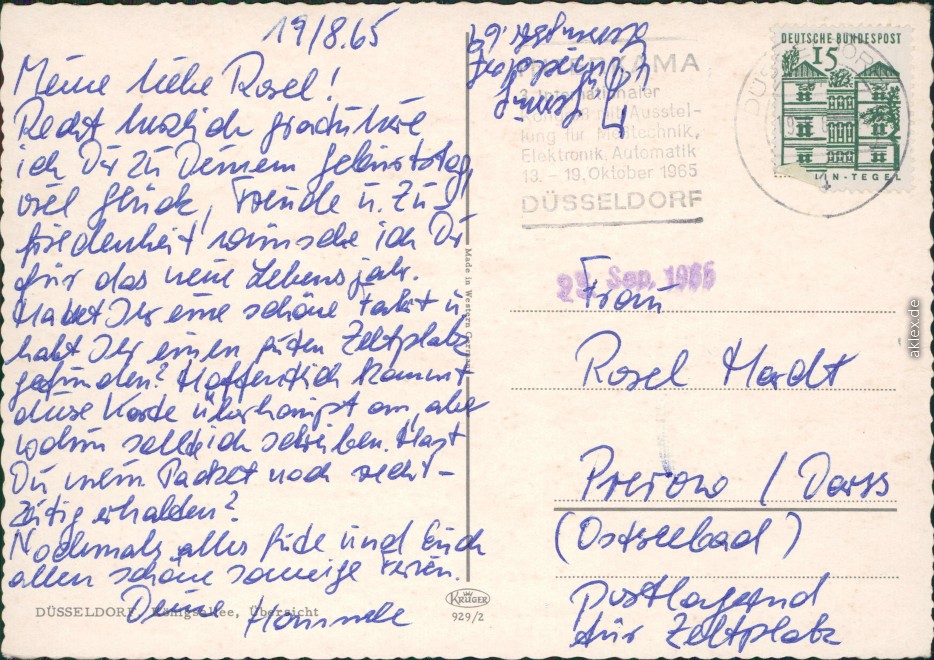 19/8.65
Meine liebe Rosel!
Recht herzlich gratuliere
ich Dir zu Deinem Geburtstag,
viel Glück, Freude u. Zu-
friedenheit wünsche ich Dir
für das neue Lebensjahr.
Hattet Ihr eine schöne Fahrt u.
habt Ihr einen guten Zeltplatz
gefunden? Hoffentlich kommt
diese Karte überhaupt an, aber
wohin sollte ich schreiben. Hast
Du mein Packet noch recht-
zeitig erhalden?
Nochmals alles Gute und Euch
allen schöne sonnige Ferien.
Deine
DÜSSELDORF, Königsallee, Übersicht
Made in Western Germany
KRÜGER
929/2
KAMA
3. Internationaler
Kongreß mit Ausstel-
lung für Meßtechnik,
Elektronik, Automatik
13. - 19. Oktober 1965
DÜSSELDORF
DEUTSCHE BUNDESPOST
15
LIN-TEGEL
Sep. 1965
Frau
Rosel Hardt
Prerow / Darss
(Ostseebad)
postlagernd
für Zeltplatz
aklex.de